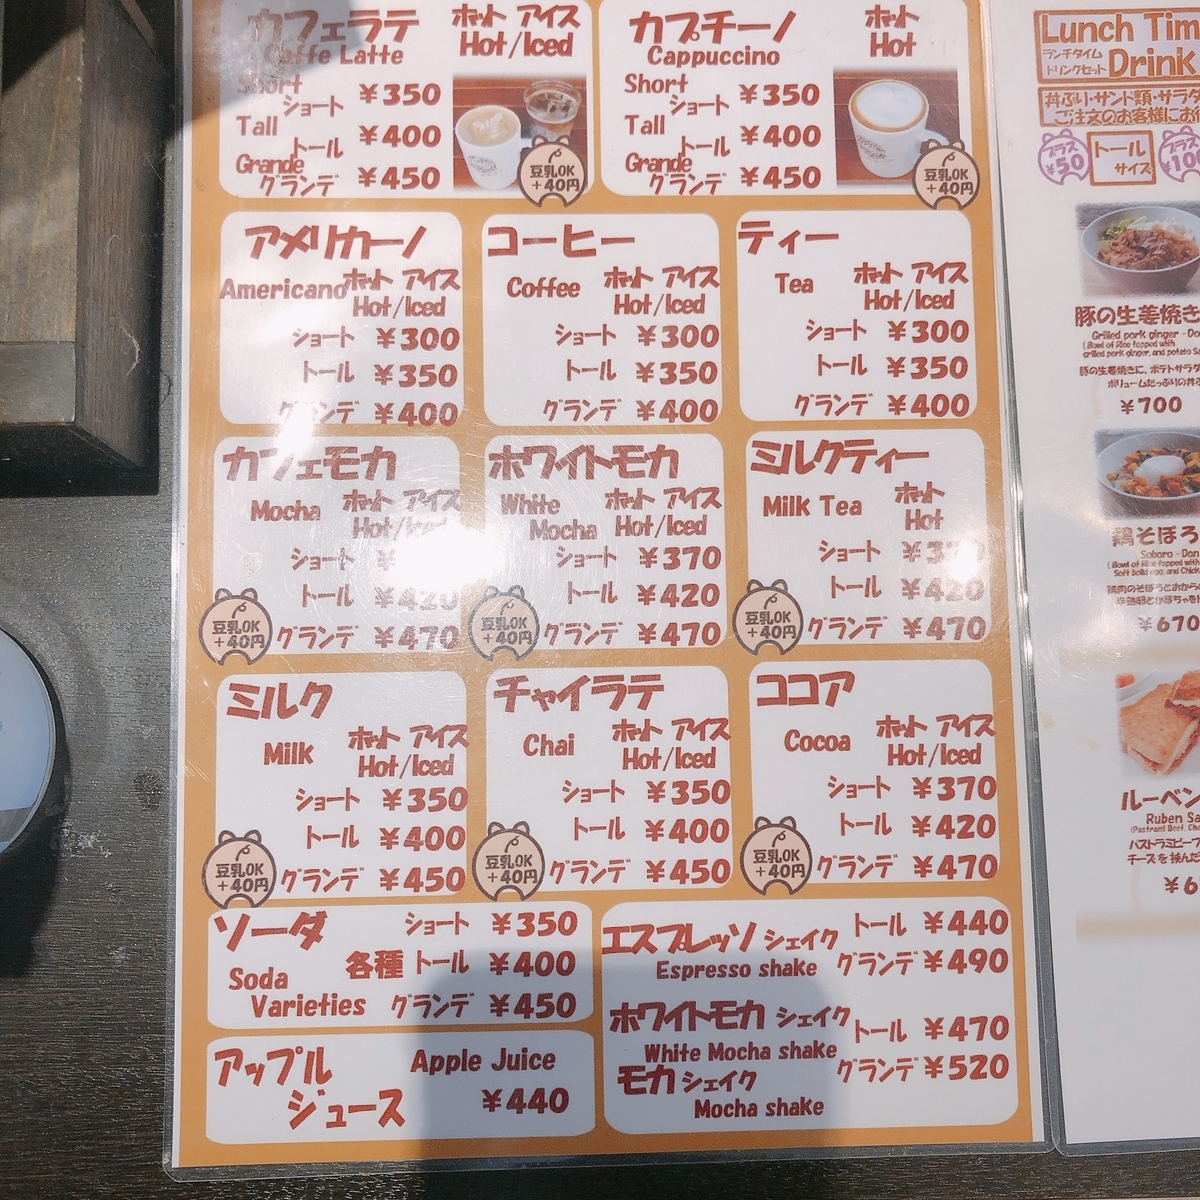 カフェラテ ホット アイス
Caffe Latte Hot/Iced
Short
ショート ¥350
Tall
トール ¥400
Grande
グランデ ¥450
豆乳OK
+40円
カプチーノ ホット
Cappuccino Hot
Short
ショート ¥350
Tall
トール ¥400
Grande
グランデ ¥450
豆乳OK
+40円
アメリカーノ
Americano ホット アイス
Hot/Iced
ショート ¥300
トール ¥350
グランデ ¥400
コーヒー
Coffee ホット アイス
Hot/Iced
ショート ¥300
トール ¥350
グランデ ¥400
ティー
Tea ホット アイス
Hot/Iced
ショート ¥300
トール ¥350
グランデ ¥400
カフェモカ
Mocha ホット アイス
Hot/Iced
ショート ¥
トール ¥420
グランデ ¥470
豆乳OK
+40円
ホワイトモカ
White Mocha ホット アイス
Hot/Iced
ショート ¥370
トール ¥420
グランデ ¥470
豆乳OK
+40円
ミルクティー
Milk Tea ホット
Hot
ショート ¥370
トール ¥420
グランデ ¥470
豆乳OK
+40円
ミルク
Milk ホット アイス
Hot/Iced
ショート ¥350
トール ¥400
グランデ ¥450
豆乳OK
+40円
チャイラテ
Chai ホット アイス
Hot/Iced
ショート ¥350
トール ¥400
グランデ ¥450
豆乳OK
+40円
ココア
Cocoa ホット アイス
Hot/Iced
ショート ¥370
トール ¥420
グランデ ¥470
豆乳OK
+40円
ソーダ ショート ¥350
Soda 各種 トール ¥400
Varieties グランデ ¥450
アップル Apple Juice
ジュース ¥440
エスプレッソ シェイク トール ¥440
Espresso shake グランデ ¥490
ホワイトモカ シェイク トール ¥470
White Mocha shake グランデ ¥520
モカ シェイク
Mocha shake
Lunch Tim
ランチタイム
ドリンクセット Drink
丼ぶり・サンド類・サラダ
ご注文のお客様にお
プラス
¥50
トール
サイズ
プラス
¥10
豚の生姜焼き
Grilled pork ginger - Don
(Bowl of Rice topped with
grilled pork ginger, and potato Sa
豚の生姜焼きに、ポテトサラダ
ボリュームたっぷりの丼
¥700
鶏そぼろ
Soboro - Don
(Bowl of Rice topped with
Soft boild egg, and Chick
¥670
ルーベン
Ruben Sa
(Pastrami Beef, Ch
パストラミビーフ
チーズを挟んだ
¥6